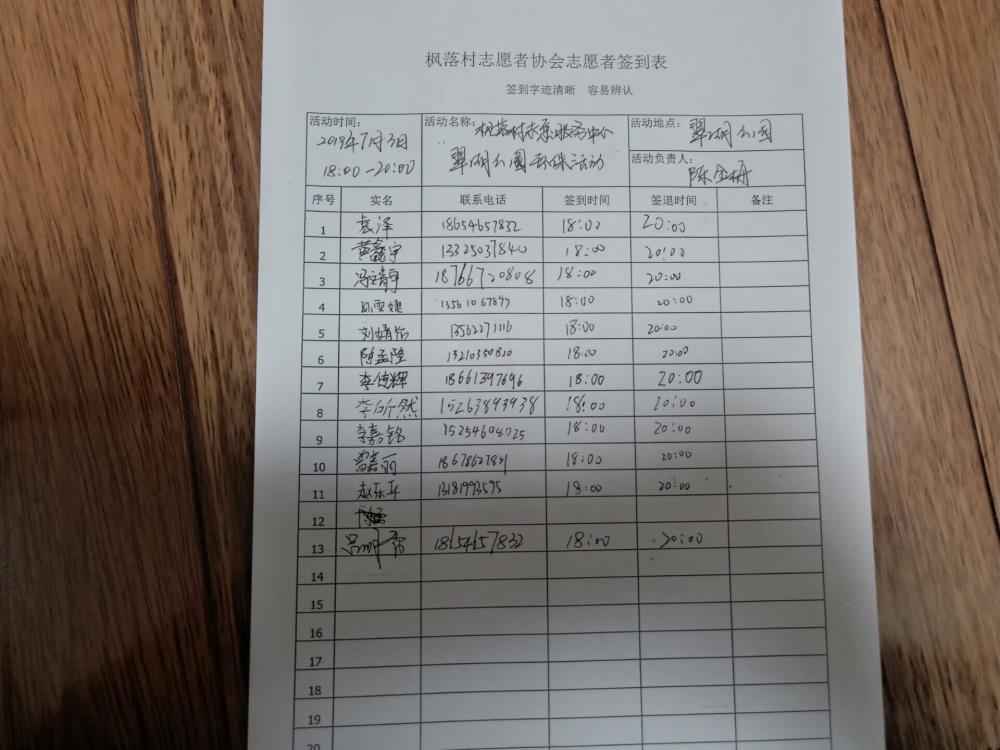 枫落村志愿者协会志愿者签到表
签到字迹清晰 容易辨认
活动时间：
2019年7月3日
18:00-20:00
活动名称：枫落村志愿服务中心
翠湖公园环保活动
活动地点：翠湖公园
活动负责人：
陈金册
序号 实名 联系电话 签到时间 签退时间 备注
1 袁泽 18654657832 18:00 20:00
2 黄鑫宇 13325037840 18:00 20:00
3 18766720808 18:00 20:00
4 13561067899 18:00 20:00
5 刘婧怡 13562271116 18:00 20:00
6 陈孟陞 13210350820 18:00 20:00
7 李德辉 18661397696 18:00 20:00
8 李昕然 15263893938 18:00 20:00
9 李嘉铭 15254608025 18:00 20:00
10 丽 18:00 20:00
11 赵乐 13181993595 18:00 20:00
12
13 18654657832 18:00 20:00
14
15
16
17
18
19
20